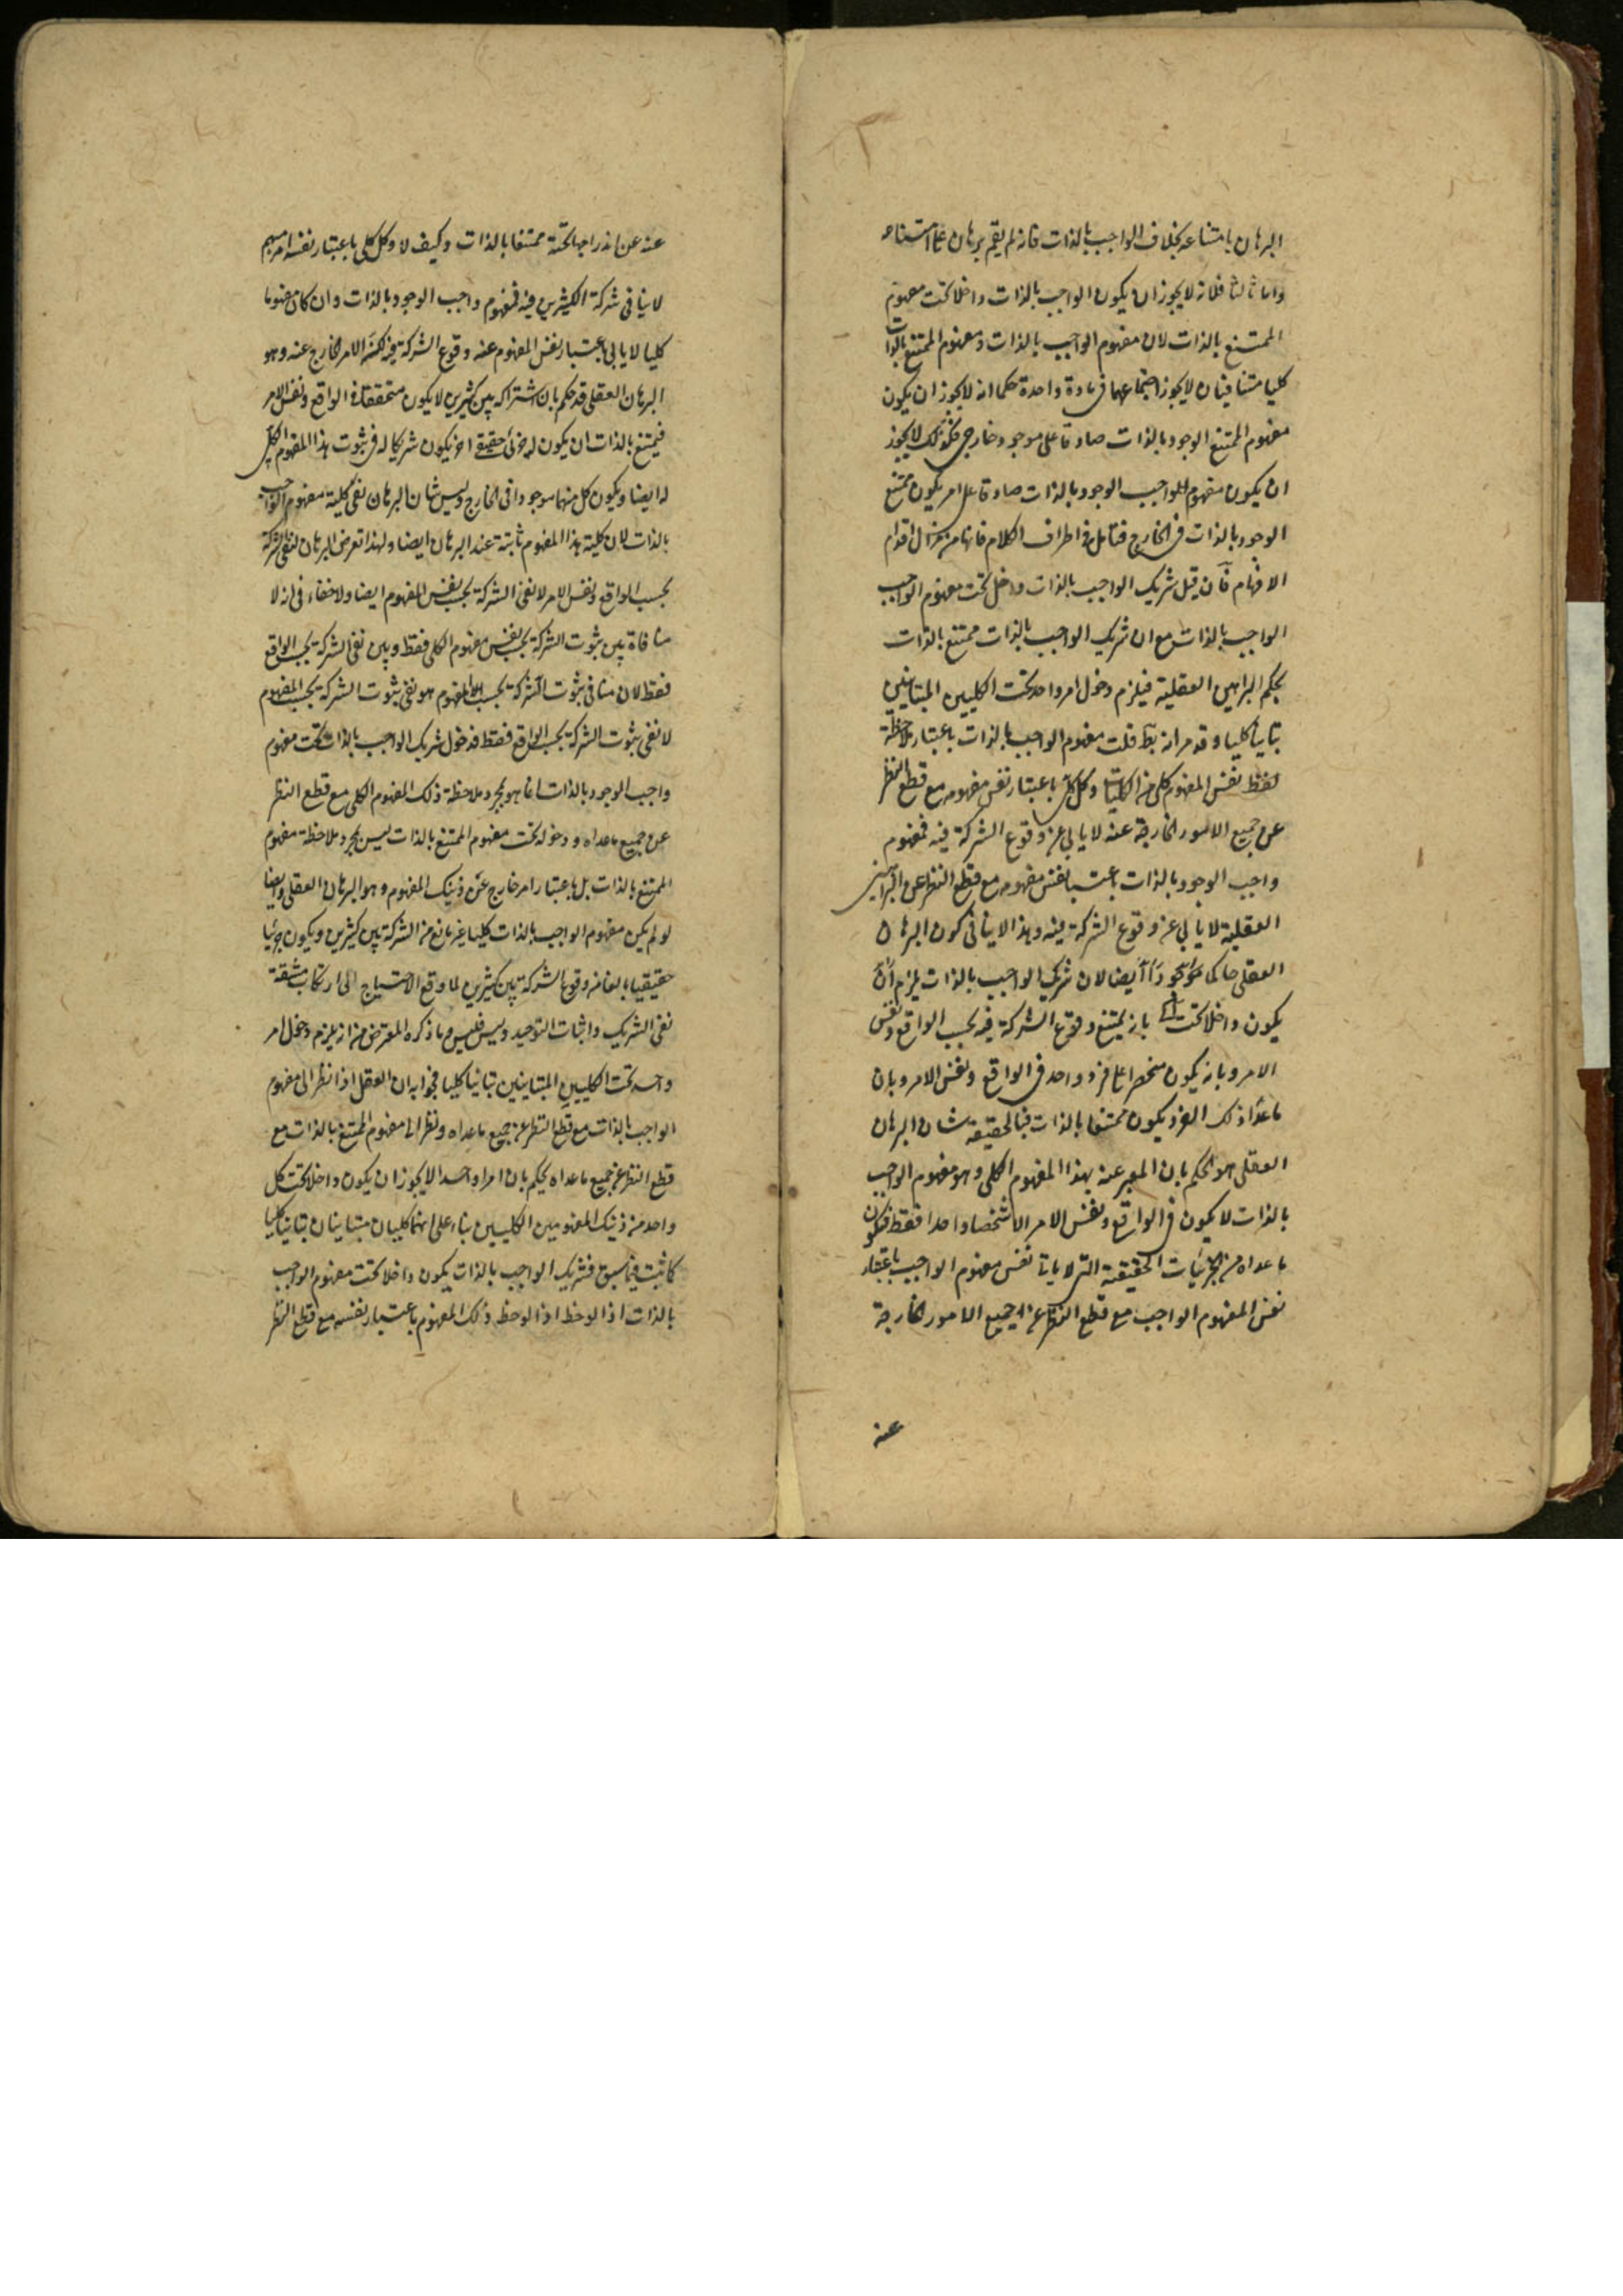 البرهان بامتناعه بخلاف الواجب بالذات فانه لم يقم برهان على امتناعه
واما ثالثا فلانه لا يجوز ان يكون الواجب بالذات داخلا تحت مفهوم
الممتنع بالذات لان مفهوم الواجب بالذات ومفهوم الممتنع بالذات
كليا متنافيان لا يجوز اجتماعهما فى مادة واحدة حكما انه لا يجوز ان يكون
مفهوم الممتنع الوجود بالذات صادقا على موجود خارجى فكذلك لا يجوز
ان يكون مفهوم الواجب الوجود بالذات صادقا على امر يكون ممتنع
الوجود بالذات فى الخارج فتامل فى اطراف الكلام فانها من مزال اقدام
الافهام فان قيل شريك الواجب بالذات داخل تحت مفهوم الواجب
الواجب بالذات مع ان شريك الواجب بالذات ممتنع بالذات
بحكم البراهين العقلية فيلزم دخول امر واحد تحت الكليين المتباينين
تباينا كليا وقد مر انه بط قلت مفهوم الواجب بالذات باعتبار ملاحظة
لفظ نفس المفهوم كلى من الكليات وكل كلى باعتبار نفس مفهومه مع قطع النظر
عن جميع الامور الخارجة عنه لا يابى عن وقوع الشركة فيه فمفهوم
واجب الوجود بالذات باعتبار نفس مفهومه مع قطع النظر عن البراهين
العقلية لا يابى عن وقوع الشركة فيه وهذا لا ينافى كون البرهان
العقلى حاكما ايضا لان شريك الواجب بالذات يلزم ان
يكون داخلا تحت بانه يمتنع وقوع الشركة فيه بحسب الواقع ونفس
الامر وبانه يكون منحصرا على فرد واحد فى الواقع ونفس الامر وبان
ماعدا ذلك الفرد يكون ممتنعا بالذات فبالحقيقة شان البرهان
العقلى هو الحكم بان المعبر عنه بهذا المفهوم الكلى وهو مفهوم الواجب
بالذات لا يكون فى الواقع ونفس الامر الا شخصا واحدا فقط فيكون
ماعداه من الجزئيات الحقيقية التى لا ياباه نفس مفهوم الواجب باعتبار
نفس المفهوم الواجب مع قطع النظر عن جميع الامور الخارجة
عنه
عنه عن اندراجها تحته ممتنعا بالذات وكيف لا وكل كلى باعتبار نفسه امر مبهم
لا ينافى شركة الكثيرين فيه فمفهوم واجب الوجود بالذات وان كان مفهوما
كليا لا يابى باعتبار نفس المفهوم عنه وقوع الشركة فيه لكنه الامر الخارج عنه وهو
البرهان العقلى قد حكم بان اشتراكه بين كثيرين لا يكون متحققا فى الواقع ونفس الامر
فيمتنع بالذات ان يكون له جزئى حقيقى اخر يكون شريكا له فى ثبوت هذا المفهوم الكلى
له ايضا ويكون كل منهما موجودا فى الخارج وليس شان البرهان نفى كلية مفهوم الواجب
بالذات لان كلية هذا المفهوم ثابتة عند البرهان ايضا ولهذا تعرض البرهان لنفى الشركة
بحسب الواقع ونفس الامر لا نفى الشركة بحسب نفس المفهوم ايضا ولا خفاء فى انه لا
منافاة بين ثبوت الشركة بحسب نفس مفهوم الكلى فقط وبين نفى الشركة بحسب الواقع
فقط لان منافى ثبوت الشركة بحسب المفهوم هو نفى ثبوت الشركة بحسب المفهوم
لا نفى ثبوت الشركة بحسب الواقع فقط فدخول شريك الواجب بالذات تحت مفهوم
واجب الوجود بالذات انما هو بمجرد ملاحظة ذلك المفهوم الكلى مع قطع النظر
عن جميع ماعداه ودخوله تحت مفهوم الممتنع بالذات ليس بمجرد ملاحظة مفهوم
الممتنع بالذات بل باعتبار امر خارج عن ذينك المفهوم وهو البرهان العقلى وايضا
لو لم يكن مفهوم الواجب بالذات كليا غير مانع من الشركة بين كثيرين ويكون جزئيا
حقيقيا مانعا من وقوع الشركة بين كثيرين لما وقع الاحتياج الى ارتكاب مشقة
نفى الشريك واثبات التوحيد وليس فليس وما ذكره المعترض من انه يلزم دخول امر
واحد تحت الكليين المتباينين تباينا كليا فجوابه ان العقل اذا نظر الى مفهوم
الواجب بالذات مع قطع النظر عن جميع ماعداه ونظر الى مفهوم الممتنع بالذات مع
قطع النظر عن جميع ماعداه يحكم بان امرا واحدا لا يجوز ان يكون داخلا تحت كل
واحد من ذينك المفهومين الكليين بناء على انهما كليان متباينان تباينا كليا
كما ثبت فيما سبق فشريك الواجب بالذات يكون داخلا تحت مفهوم الواجب
بالذات اذا لوحظ اذا لوحظ ذلك المفهوم باعتبار نفسه مع قطع النظر